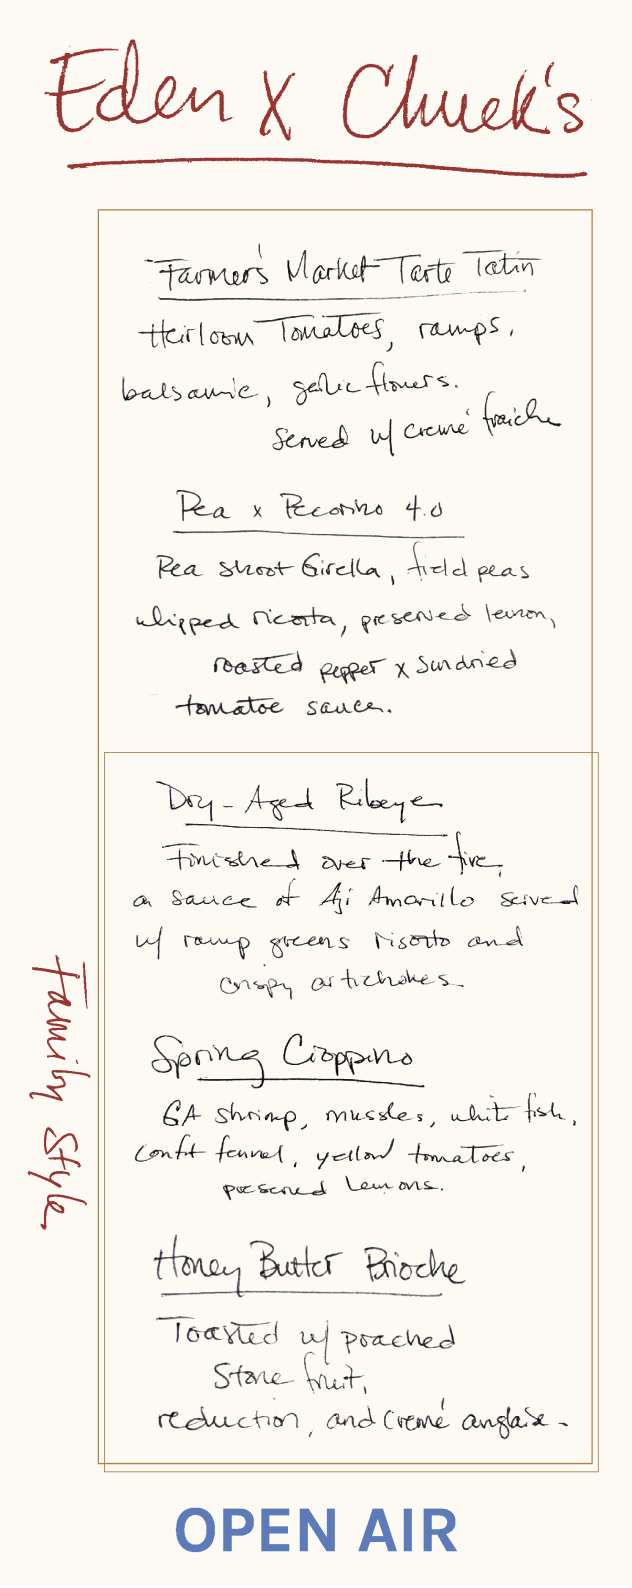 Eden X Chuck's
Farmer's Market Tarte Tatin
Heirloom Tomatoes, ramps,
balsamic, garlic flowers.
Served w/ cremé fraiche
Pea x Pecorino 4.0
Pea shoot Girella, field peas
whipped ricotta, preserved lemon,
roasted pepper x sundried
tomatoe sauce.
Dry-Aged Ribeye
Finished over the fire,
a sauce of Aji Amarillo served
w/ ramp greens risotto and
crispy artichokes.
Family Style
Spring Cioppino
GA shrimp, mussles, white fish,
confit fennel, yellow tomatoes,
preserved lemons.
Honey Butter Brioche
Toasted w/ poached
Stone fruit,
reduction, and cremé anglaise.
OPEN AIR